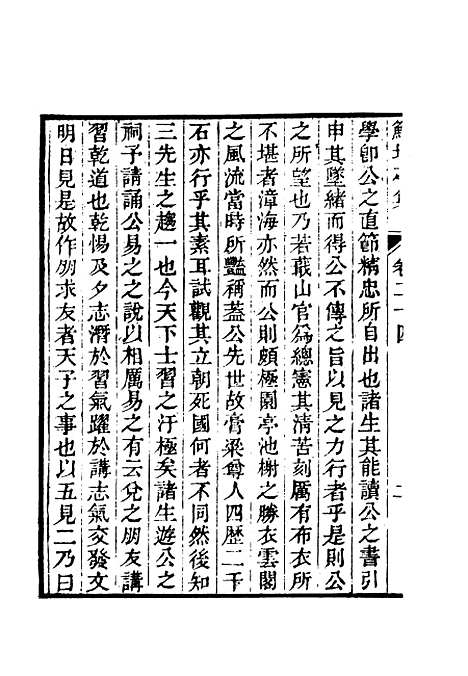 鮚埼亭集 卷二十四 二
學卽公之直節精忠所自出也諸生其能讀公之書引
申其墜緒而得公不傳之旨以見之力行者乎是則公
之所望也乃若蕺山官爲總憲其淸苦刻厲有布衣所
不堪者漳海亦然而公則頗極園亭池榭之勝衣雲閣
之風流當時所豔稱蓋公先世故膏粱尊人四歷二千
石亦行乎其素耳試觀其立朝死國何者不同然後知
三先生之趨一也今天下士習之汙極矣諸生遊公之
祠予請誦公易之之說以相厲易之有云兌之朋友講
習乾道也乾惕及夕志潛於習氣躍於講志氣交發文
明日見是故作朋求友者天子之事也以五見二乃曰